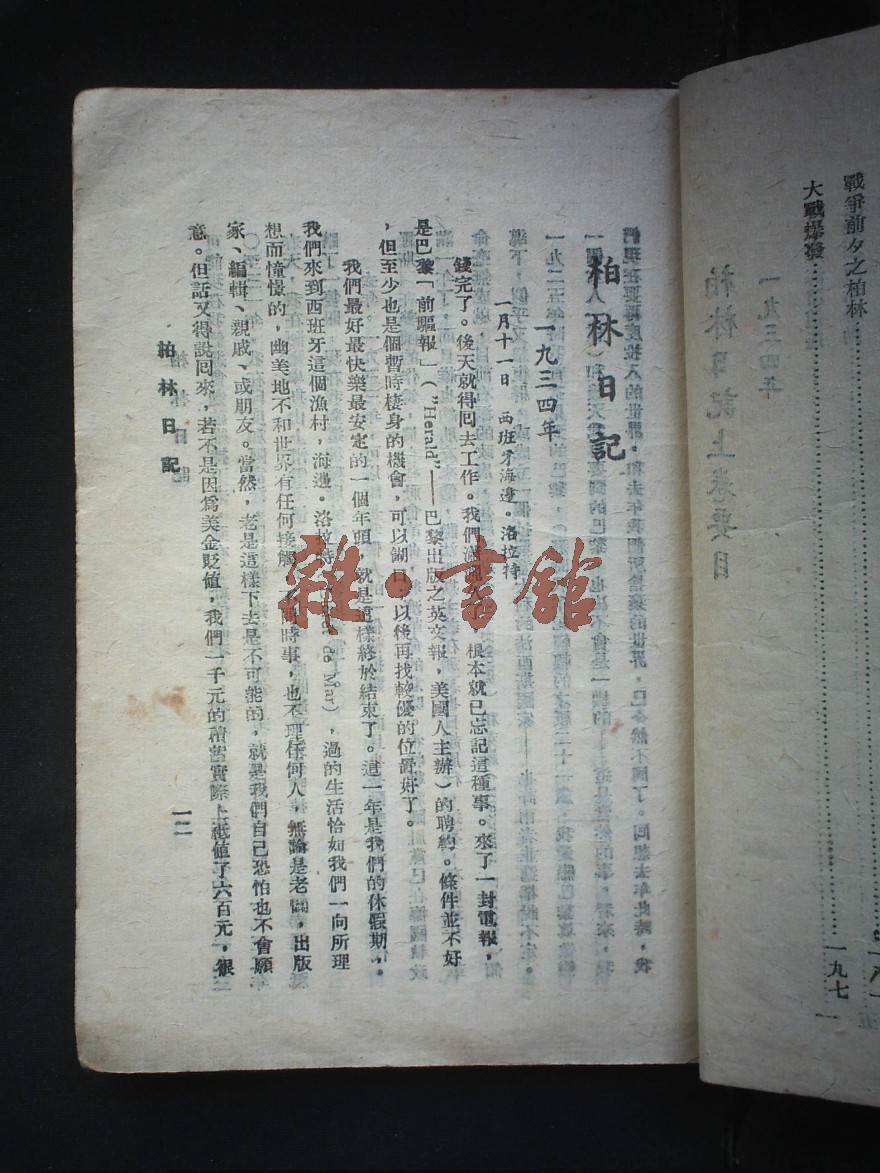 戰爭前夕之柏林
大戰爆發
一九七
柏林日記
一九三四年
一月十一日 西班牙海邊。洛拉特
錢完了。後天就得回去工作。我們 根本就已忘記這種事。來了一封電報,
是巴黎「前驅報」("Herald"——巴黎出版之英文報,美國人主辦)的聘約。條件並不好
,但至少也是個暫時棲身的機會,可以餬口。以後再找較優的位置好了。
我們最好最快樂最安定的一個年頭 就是這樣終於結束了。這一年是我們的休假期,
我們來到西班牙這個漁村,海邊。洛拉特 de Mar),過的生活恰如我們一向所理
想而憧憬的,幽美地不和世界有任何接觸 不問時事,也不理任何人,無論是老闆,出版
家、編輯、親戚、或朋友。當然,老是這樣下去是不可能的,就是我們自己恐怕也不會願
意。但話又得說回來,若不是因爲美金貶値,我們一千元的積蓄實際上祇値了六百元,很
柏林日記
雜·書館